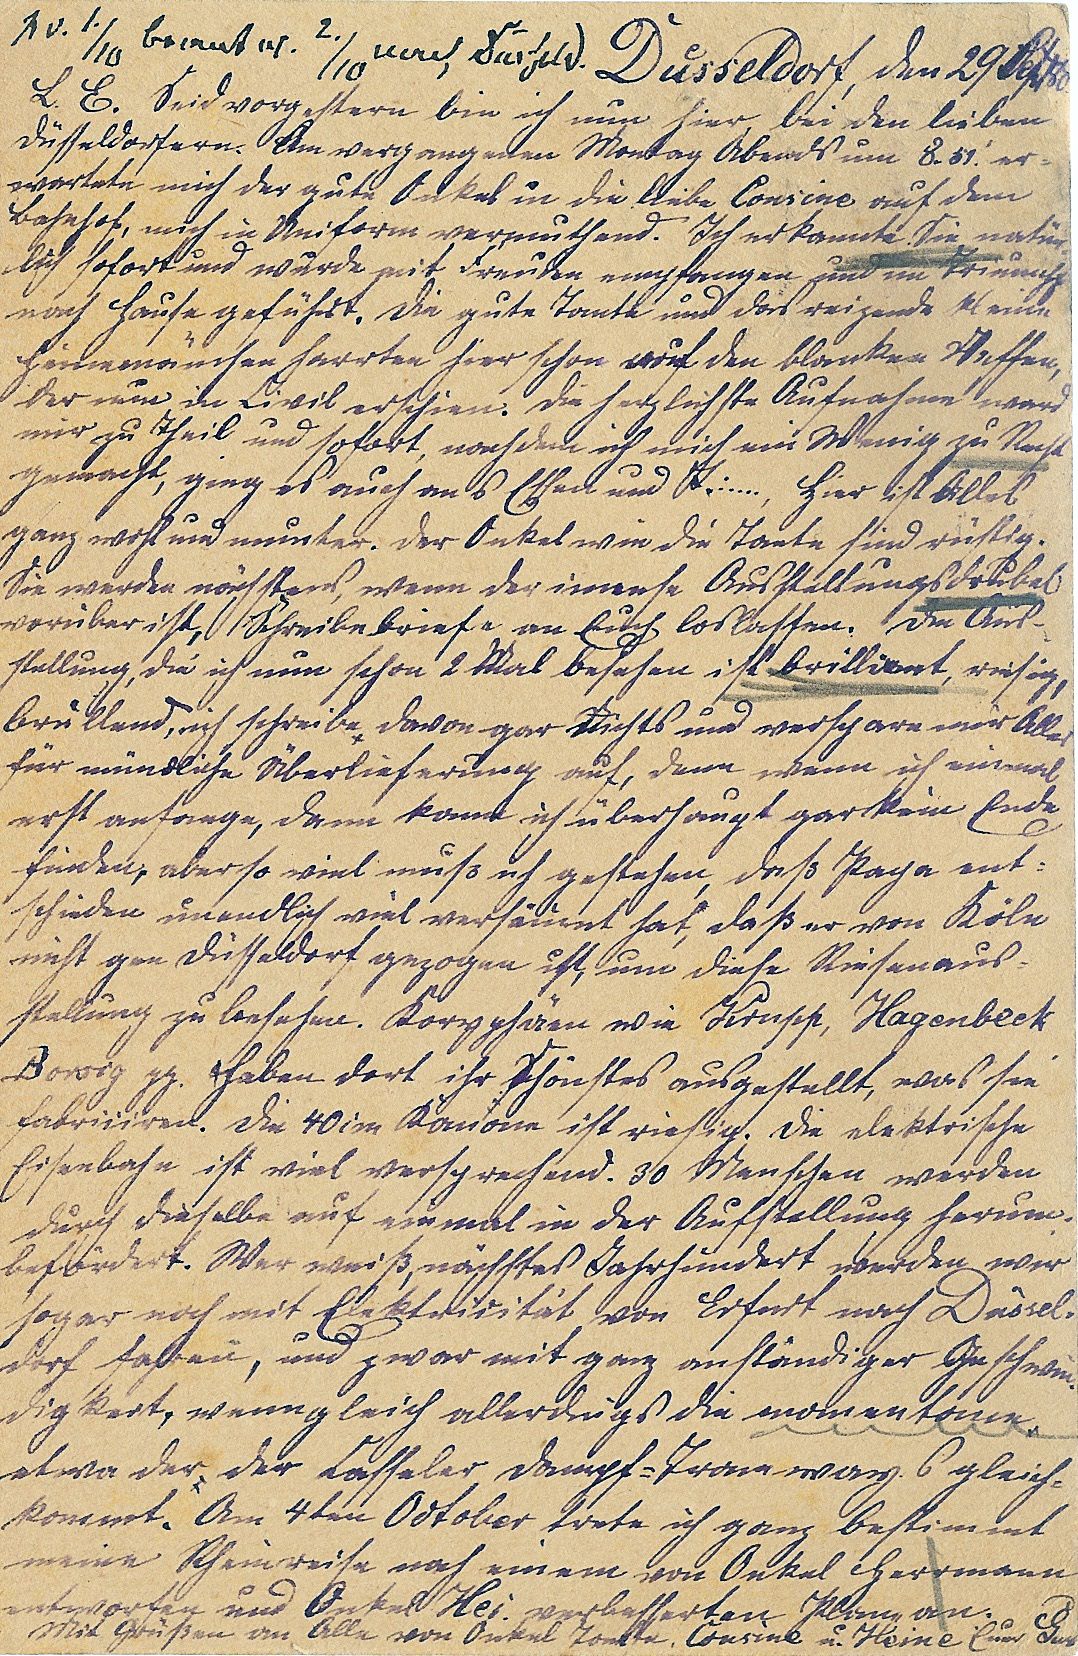 A v. 1./10 beantw. 2./10 nach Düsseld.
Düsseldorf, den 29 Sept
L. E. Seid vorgestern bin ich nun hier bei den lieben
Düsseldorfern. Am vergangenen Montag Abends um 8.51' er-
wartete mich der gute Onkel u die liebe Cousine auf dem
Bahnhof, mich in Uniform vermuthend. Ich erkannte Sie natür-
lich sofort und wurde mit Freuden empfangen und im Triumph
nach Hause geführt. Die gute Tante und das reizende kleine
Heinemännchen harrten hier schon auf den blanken Neffen,
der nun in Civil erschien. Die herzlichste Aufnahme ward
mir zu Theil und sofort, nachdem ich mich ein Wenig zu Recht
gemacht, ging es auch ans Essen und Tr....., Hier ist Alles
ganz wohl und munter. Der Onkel wie die Tante sind rüstig.
Sie werden nächstens, wenn der imense Ausstellungstrubel
vorüber ist, Schreibebriefe an Euch loslassen. Die Aus-
stellung, die ich nun schon 2 Mal besehen ist brilliant, riesig,
brüllend, ich schreibe davon gar Nichts und verspare mir Alles
für mündliche Überlieferung auf, denn wenn ich einmal
erst anfange, dann kann ich überhaupt gar kein Ende
finden, aber so viel muß ich gestehen, daß Papa ent-
schieden unendlich viel versäumt hat, daß er von Köln
nicht gen Düsseldorf gezogen ist, um diese Riesenaus-
stellung zu besehen. Koryphäen wie Krupp, Hagenbeck
Borsig pp. haben dort ihr Schönstes ausgestellt, was sie
fabriciren. Die 40 cm Kanone ist riesig. Die elektrische
Eisenbahn ist viel versprechend. 30 Menschen werden
durch dieselbe auf einmal in der Ausstellung herum-
befördert. Wer weiß, nächstes Jahrhundert werden wir
sogar noch mit Elektricität von Erfurt nach Düssel-
dorf fahren, und zwar mit ganz anständiger Geschwin-
digkeit, wenngleich allerdings die momentane
etwa der der Casseler Dampf-Tramway's gleich-
kommt. Am 4ten October trete ich ganz bestimmt
meine Rheinreise nach einem von Onkel Herrmann
entworfen und Onkel Hei. verbesserten Plane an.
Mit Grüßen an Alle von Onkel Tante, Cousine u. Heine Euer